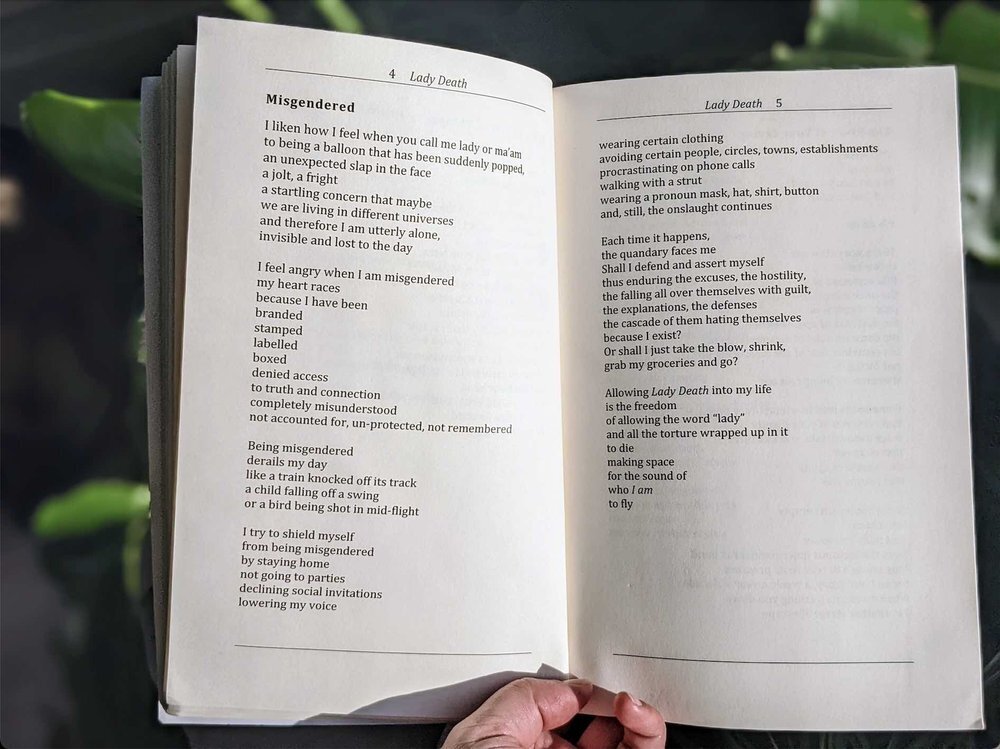 4 Lady Death
Misgendered
I liken how I feel when you call me lady or ma'am
to being a balloon that has been suddenly popped,
an unexpected slap in the face
a jolt, a fright
a startling concern that maybe
we are living in different universes
and therefore I am utterly alone,
invisible and lost to the day
I feel angry when I am misgendered
my heart races
because I have been
branded
stamped
labelled
boxed
denied access
to truth and connection
completely misunderstood
not accounted for, un-protected, not remembered
Being misgendered
derails my day
like a train knocked off its track
a child falling off a swing
or a bird being shot in mid-flight
I try to shield myself
from being misgendered
by staying home
not going to parties
declining social invitations
lowering my voice
Lady Death 5
wearing certain clothing
avoiding certain people, circles, towns, establishments
procrastinating on phone calls
walking with a strut
wearing a pronoun mask, hat, shirt, button
and, still, the onslaught continues
Each time it happens,
the quandary faces me
Shall I defend and assert myself
thus enduring the excuses, the hostility,
the falling all over themselves with guilt,
the explanations, the defenses
the cascade of them hating themselves
because I exist?
Or shall I just take the blow, shrink,
grab my groceries and go?
Allowing Lady Death into my life
is the freedom
of allowing the word “lady”
and all the torture wrapped up in it
to die
making space
for the sound of
who I am
to fly